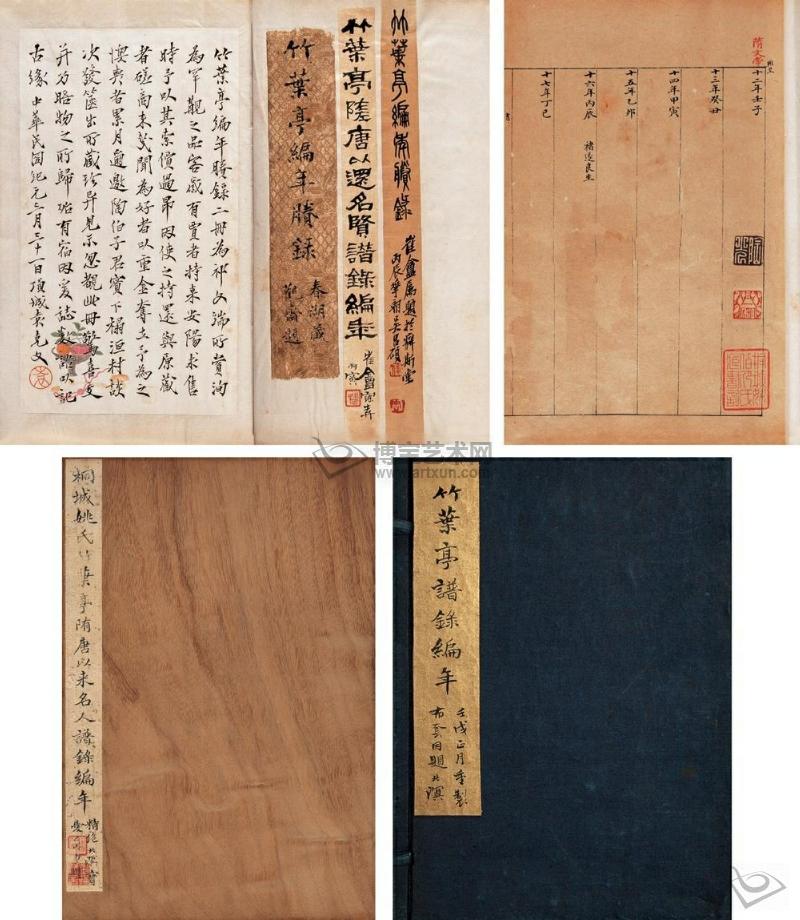 竹葉亭編年賸錄二冊為祁文端所賞洵
為罕觀之品客歲有賈者持來安陽求售
時予以其索價過昂因使之持還與原藏
者磋商未幾聞為好者以重金奪去予為之
懊喪者累月適邀陶伯子君實下榻洹村談
次發篋出所藏珍異見示忽觀此冊驚喜交
并乃賂物之所歸珆有宿因爰誌數語以記
古緣 中華民國紀元六月三十一日項城袁克文
竹葉亭編年賸錄
春湖藏
觀齋題
竹葉亭隋唐以還名賢譜錄編年
竹葉亭編年賸錄
丙辰
隋文帝
十二年壬子
十三年癸丑
十四年甲寅
十五年乙卯
十六年丙辰 褚遂良生
十七年丁巳
博宝艺术网
www.artxun.com
桐城姚氏竹葉亭隋唐以來名人譜錄編年
竹葉亭譜錄編年
壬戌正月季製
布套因題北溟